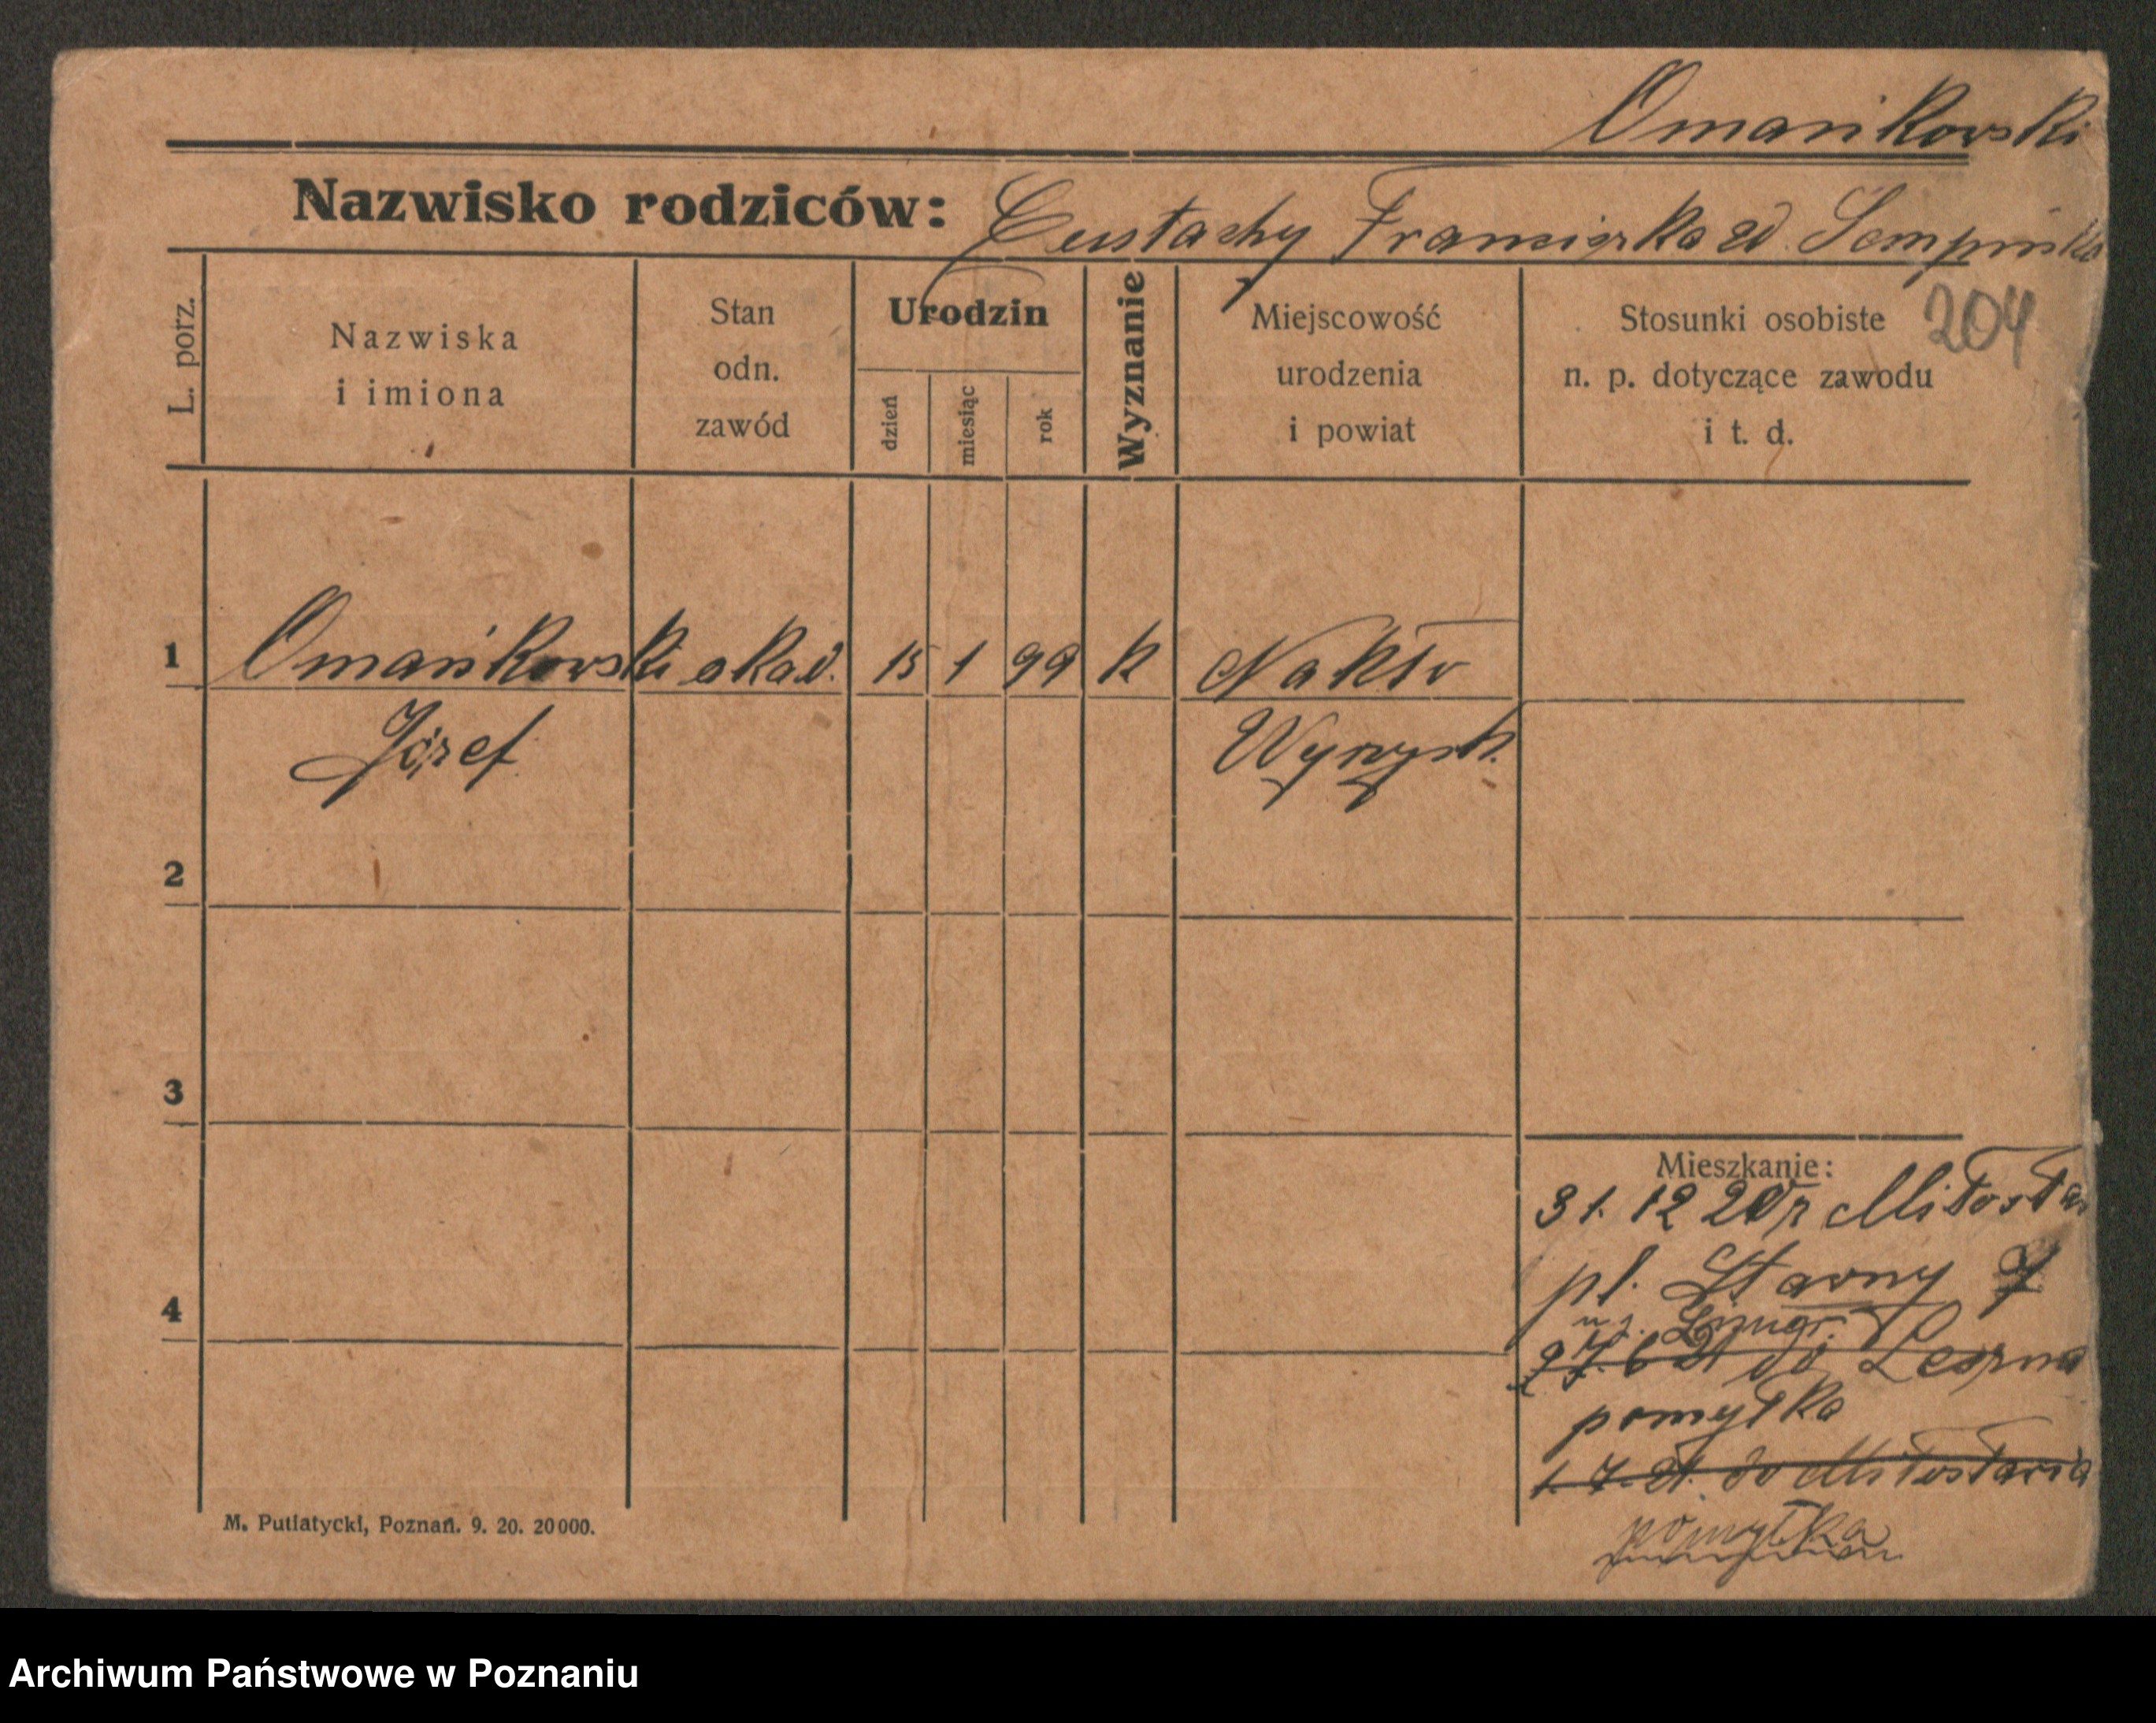 Omańkowski
Nazwisko rodziców: Eustachy Franciszka z d. Sempińska
204
L. porz.
Nazwiska
i imiona
Stan
odn.
zawód
Urodzin
dzień
miesiąc
rok
Wyznanie
Miejscowość
urodzenia
i powiat
Stosunki osobiste
n. p. dotyczące zawodu
i t. d.
1 Omańkowski akad. 15 1 99 k Nakło
Józef Wyrzysk.
2
3
4
Mieszkanie:
31. 12 20 z Miłosław
pl.
27. 6 21 do Leszna
pomyłka
1. 7. 21. do Miłosławia
pomyłka
M. Putiatycki, Poznań. 9. 20. 20000.
Archiwum Państwowe w Poznaniu